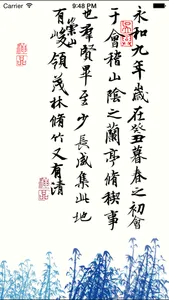 9:48 PM
永和九年歲在癸丑暮春之初會
于會稽山陰之蘭亭脩稧事
也羣賢畢至少長咸集此地
有崇山峻領茂林脩竹又有清